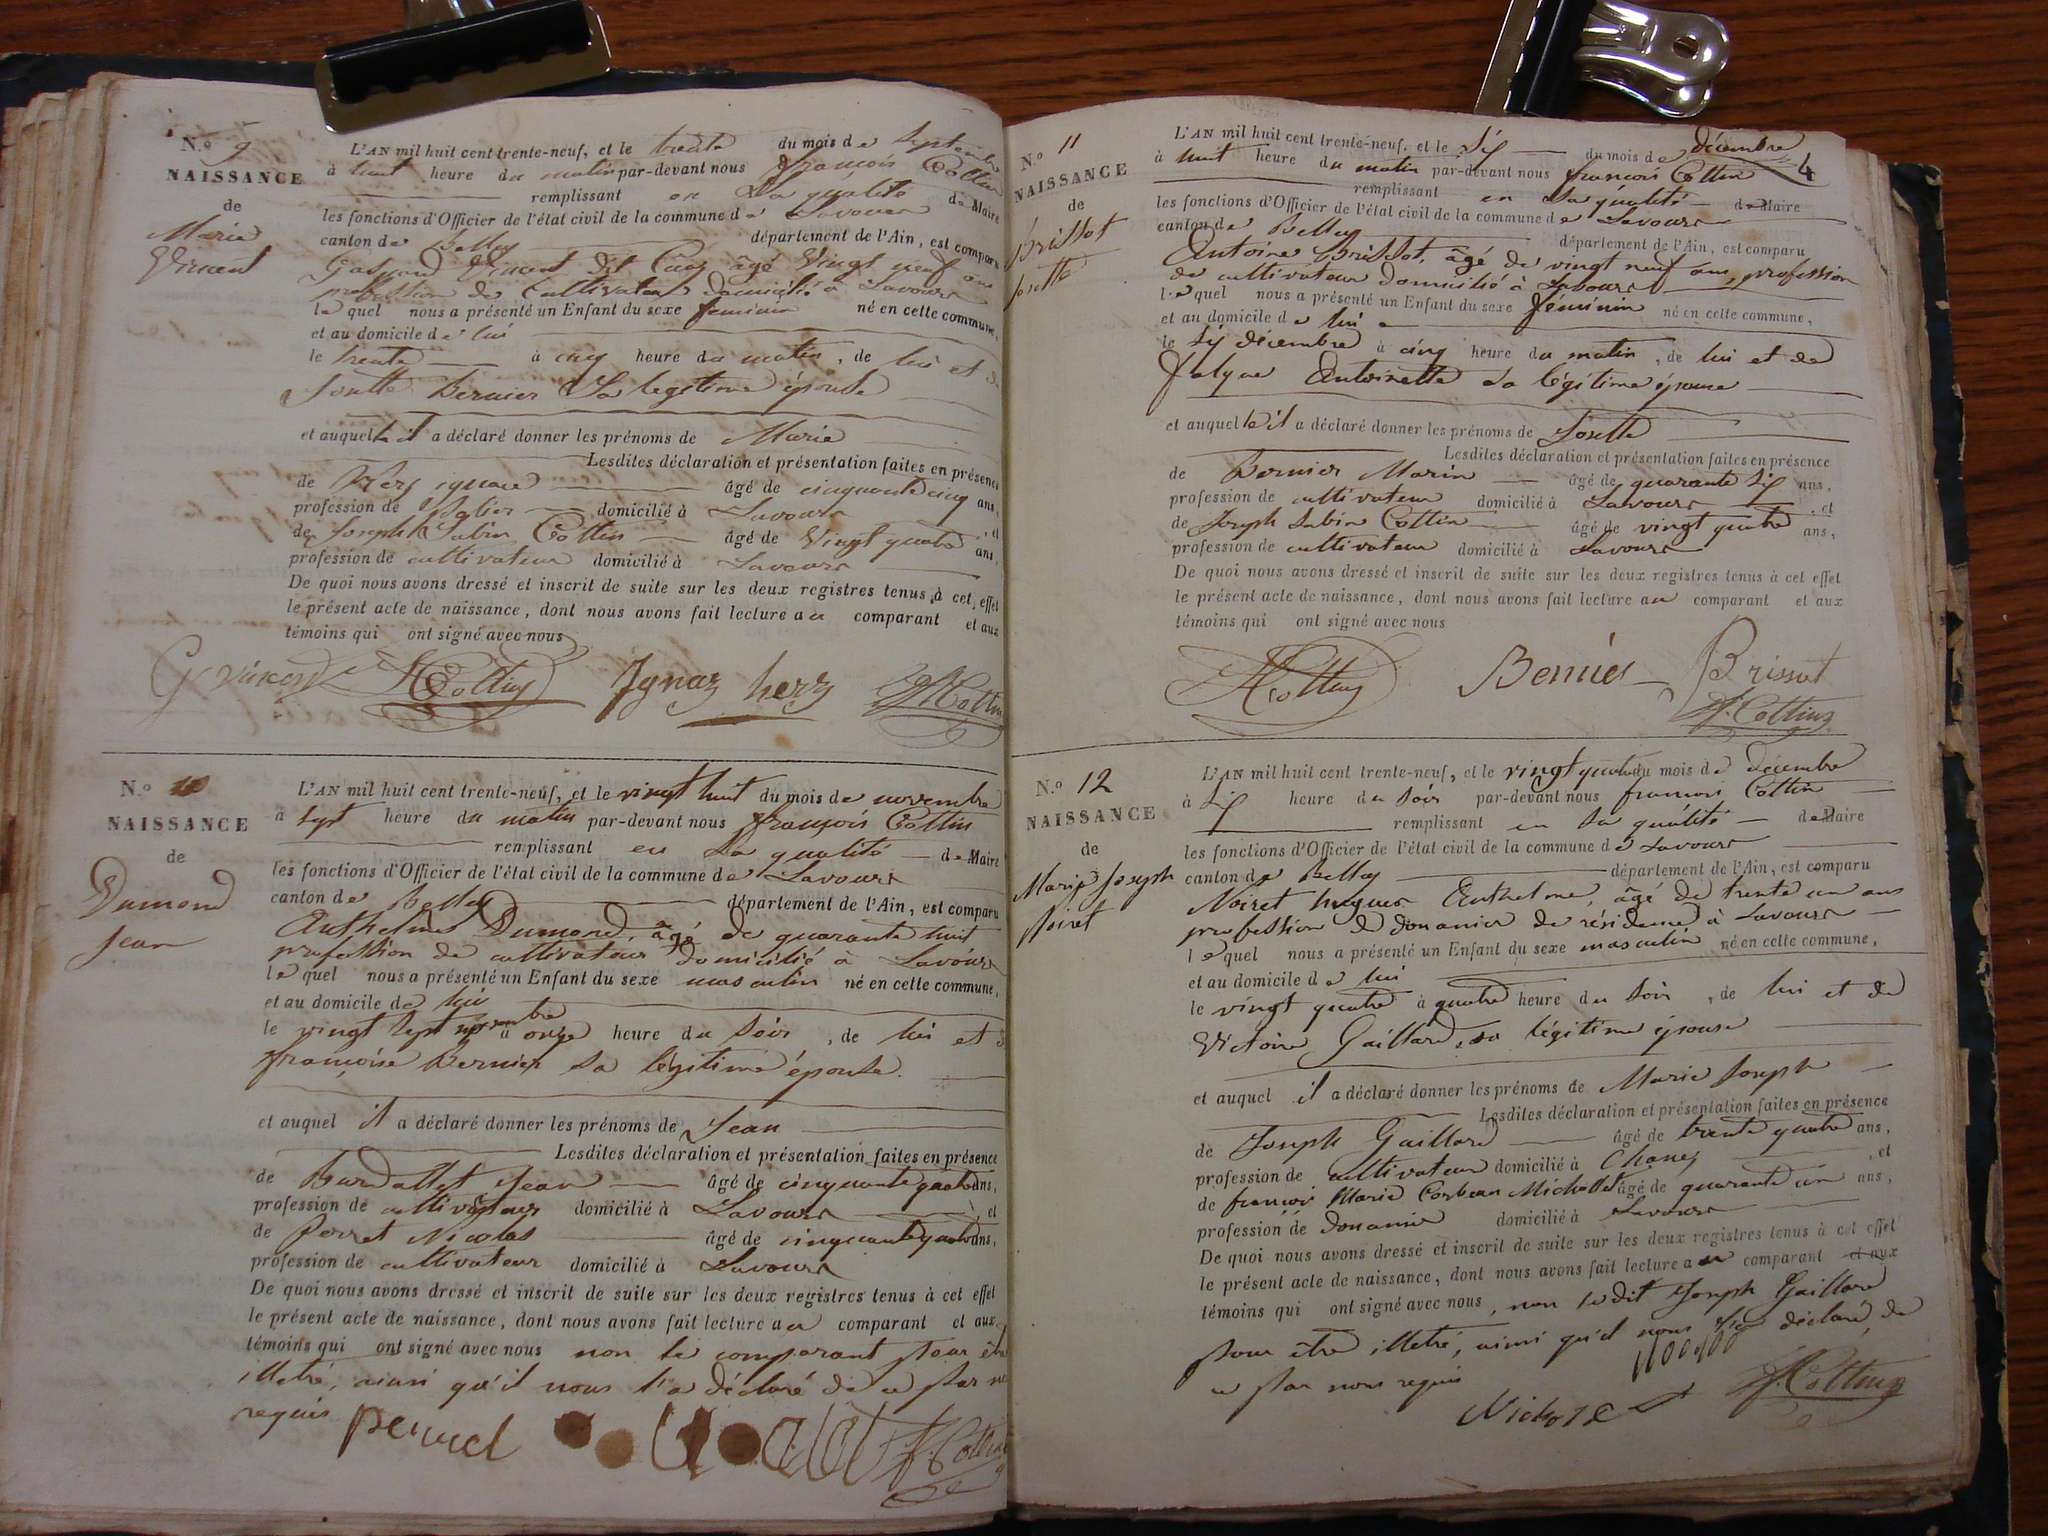 N.o 9
NAISSANCE
de
Marie
Vincent
L'AN mil huit cent trente-neuf, et le trente du mois de Septembre
à huit heure du matin par-devant nous françois Cottin
remplissant en Sa qualité de Maire
les fonctions d'Officier de l'état civil de la commune de Lavours
canton de Belley département de l'Ain, est comparu
Gaspard Vincent dit âgé Vingt neuf ans
profession de Cultivateur domicilié à Lavours
lequel nous a présenté un Enfant du sexe feminin né en cette commune,
et au domicile de lui
le trente à cinq heure du matin, de lui et de
Josette Bernier Sa legitime épouse
et auquelle il a déclaré donner les prénoms de Marie
Lesdites déclaration et présentation faites en présence
de herz ignace âgé de cinquante cinq ans,
profession de domicilié à Lavours, et
de Joseph Sabin Cottin âgé de Vingt quatre ans,
profession de cultivateur domicilié à Lavours
De quoi nous avons dressé et inscrit de suite sur les deux registres tenus à cet effet
le présent acte de naissance, dont nous avons fait lecture au comparant et aux
témoins qui ont signé avec nous
G Vincent Cottin Ignaz herz Cottin
N.o 10
NAISSANCE
de
Dumond
Jean
L'AN mil huit cent trente-neuf, et le vingt huit du mois de novembre
à sept heure du matin par-devant nous françois Cottin
remplissant en Sa qualité de Maire
les fonctions d'Officier de l'état civil de la commune de Lavours
canton de Belley département de l'Ain, est comparu
Anthelme Dumond, âgé de quarante huit
profession de cultivateur domicilié à Lavours
lequel nous a présenté un Enfant du sexe masculin né en cette commune,
et au domicile de lui
le vingt sept novembre à onze heure du soir, de lui et de
françoise Bernier sa légitime épouse.
et auquel il a déclaré donner les prénoms de Jean
Lesdites déclaration et présentation faites en présence
de Burdallet Jean âgé de cinquante quatre ans,
profession de cultivateur domicilié à Lavours, et
de Perret Nicolas âgé de cinquante quatre ans,
profession de cultivateur domicilié à Lavours
De quoi nous avons dressé et inscrit de suite sur les deux registres tenus à cet effet
le présent acte de naissance, dont nous avons fait lecture au comparant et aux
témoins qui ont signé avec nous non le comparant pour être
illetré, ainsi qu'il nous l'a déclaré de ce par nous
requis
Cottin
N.o 11
NAISSANCE
de
Brissot
Josette
4
L'AN mil huit cent trente-neuf, et le Six du mois de décembre
à huit heure du matin par-devant nous françois Cottin
remplissant en Sa qualité de Maire
les fonctions d'Officier de l'état civil de la commune de Lavours
canton de Belley département de l'Ain, est comparu
Antoine Brissot, âgé de vingt neuf ans, profession
de cultivateur domicilié à Lavours
lequel nous a présenté un Enfant du sexe féminin né en cette commune,
et au domicile de lui
le Six décembre à cinq heure du matin, de lui et de
Antoinette sa légitime épouse
et auquelle il a déclaré donner les prénoms de Josette
Lesdites déclaration et présentation faites en présence
de Bernier Marin âgé de quarante Six ans,
profession de cultivateur domicilié à Lavours, et
de Joseph Sabin Cottin âgé de vingt quatre ans,
profession de cultivateur domicilié à Lavours
De quoi nous avons dressé et inscrit de suite sur les deux registres tenus à cet effet
le présent acte de naissance, dont nous avons fait lecture au comparant et aux
témoins qui ont signé avec nous
Cottin Bernier Brissot
Cottin
N.o 12
NAISSANCE
de
Marie Joseph
Noiret
L'AN mil huit cent trente-neuf, et le vingt quatre du mois de décembre
à Six heure du soir par-devant nous françois Cottin
remplissant en Sa qualité de Maire
les fonctions d'Officier de l'état civil de la commune de Lavours
canton de Belley département de l'Ain, est comparu
Noiret hugues Anthelme, âgé de trente un ans
profession de douanier de résidence à Lavours
lequel nous a présenté un Enfant du sexe masculin né en cette commune,
et au domicile de lui
le vingt quatre à quatre heure du soir, de lui et de
Victoire Gaillard, sa légitime épouse
et auquel il a déclaré donner les prénoms de Marie Joseph
Lesdites déclaration et présentation faites en présence
de Joseph Gaillard âgé de trente quatre ans,
profession de cultivateur domicilié à Chanez, et
de françois Marie Corbeau Michallet âgé de quarante un ans,
profession de douanier domicilié à Lavours
De quoi nous avons dressé et inscrit de suite sur les deux registres tenus à cet effet
le présent acte de naissance, dont nous avons fait lecture au comparant et aux
témoins qui ont signé avec nous, non le dit Joseph Gaillard
pour être illetré, ainsi qu'il nous l'a déclaré, de
ce par nous requis
Cottin